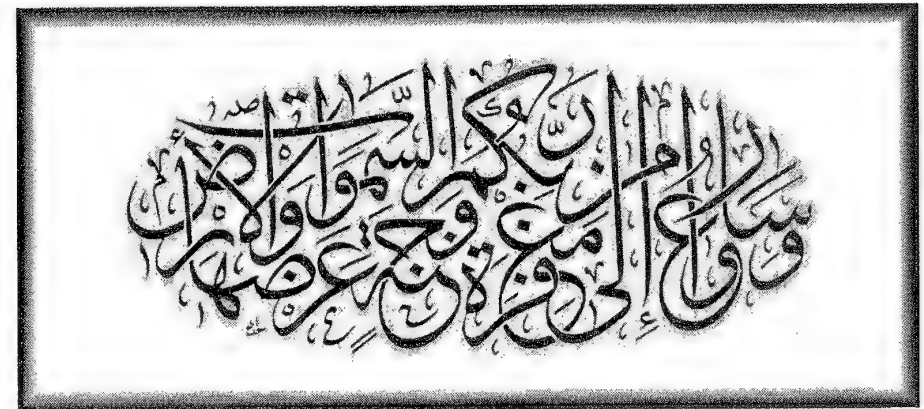 وَسَارِعُوا إِلَى مَغْفِرَةٍ مِنْ رَبِّكُمْ وَجَنَّةٍ عَرْضُهَا السَّمَوَاتُ وَالْأَرْضُ